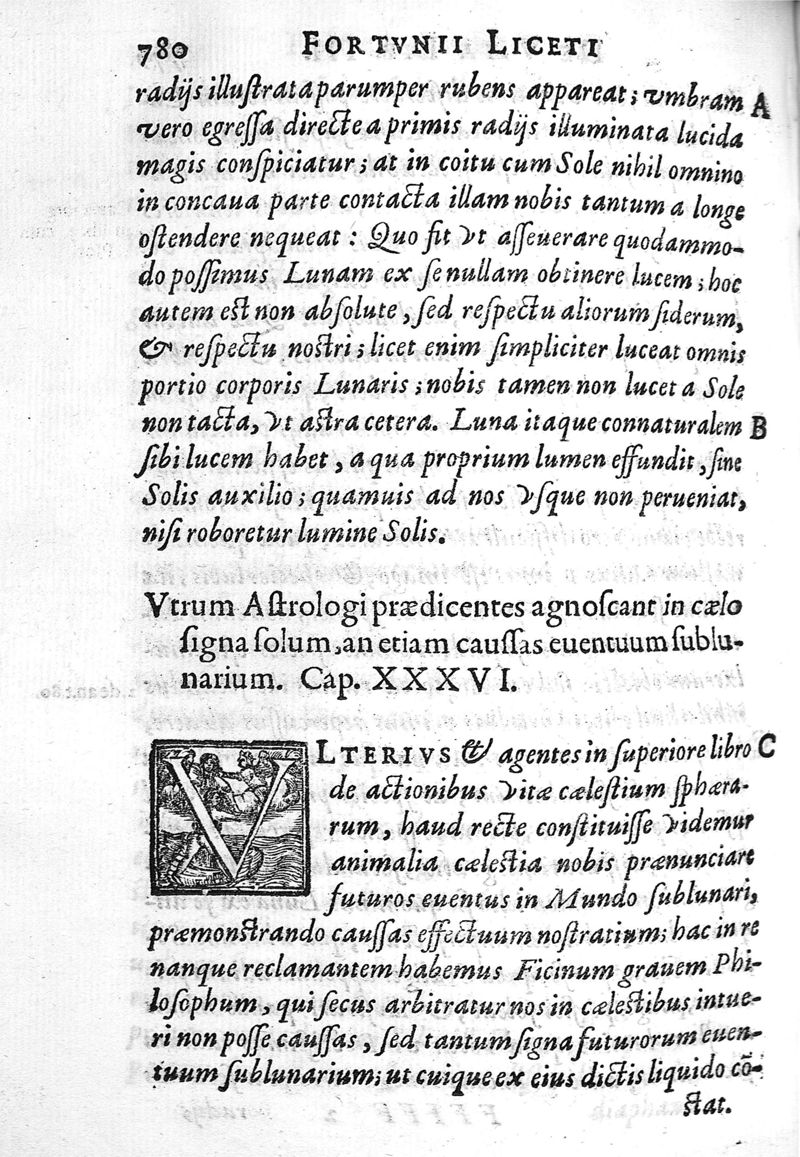 780 FORTVNII LICETI
radijs illuſtrata parumper rubens appareat; vmbram A
vero egreſſa directe a primis radijs illuminata lucida
magis conſpiciatur; at in coitu cum Sole nihil omnino
in concaua parte contacta illam nobis tantum a longe
oſtendere nequeat: Quo fit vt aſſeuerare quodammo-
do poſſimus Lunam ex ſe nullam obtinere lucem; hoc
autem eſt non abſolute, ſed reſpectu aliorum ſiderum,
& reſpectu noſtri; licet enim ſimpliciter luceat omnis
portio corporis Lunaris; nobis tamen non lucet a Sole
non tacta, vt aſtra cetera. Luna itaque connaturalem B
ſibi lucem habet, a qua proprium lumen effundit, ſine
Solis auxilio; quamuis ad nos vſque non perueniat,
niſi roboretur lumine Solis.
Vtrum Aſtrologi prædicentes agnoſcant in cælo
ſigna ſolum, an etiam cauſſas euentuum ſublu-
narium. Cap. XXXVI.
VLTERIVS & agentes in ſuperiore libro C
de actionibus vitæ cæleſtium ſphæra-
rum, haud recte conſtituiſſe videmur
animalia cæleſtia nobis prænunciare
futuros euentus in Mundo ſublunari,
præmonſtrando cauſſas effectuum noſtratium; hac in re
nanque reclamantem habemus Ficinum grauem Phi-
loſophum, qui ſecus arbitratur nos in cæleſtibus intue-
ri non poſſe cauſſas, ſed tantum ſigna futurorum euen-
tuum ſublunarium; ut cuique ex eius dictis liquido cõ-
ſtat.